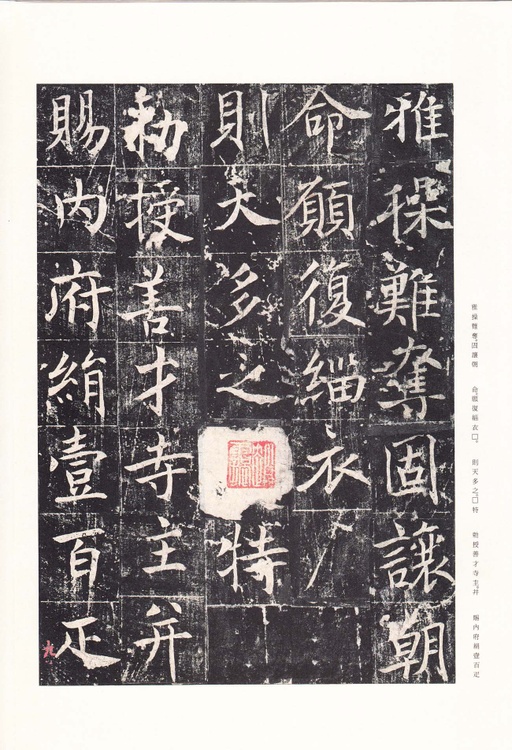 雅操難奪固讓朝
命願復緇衣
則天多之特
勑授善才寺主并
賜内府絹壹百疋
雅操難奪固讓朝　命願復緇衣□,　則天多之□特　勑授善才寺主并　賜内府絹壹百疋